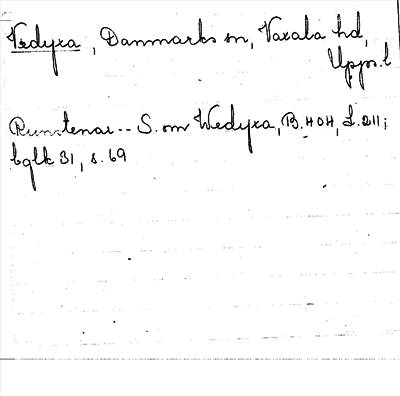 Vedyxa, Danmarks sn, Vaxala hd,
Upps. l
Runstenar -- S. om Wedyxa, B. 404, L. 211;
bglk 31, s. 69